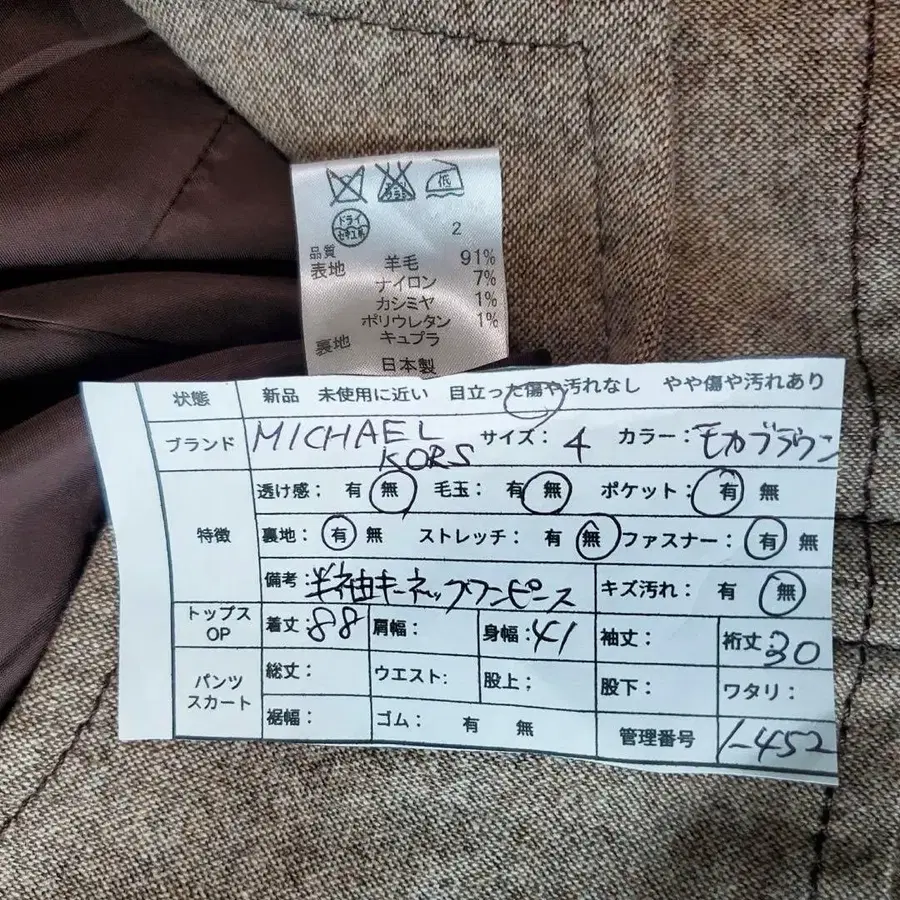 低
ドライ
セキユ系
2
品質
表地 羊毛 91%
ナイロン 7%
カシミヤ 1%
ポリウレタン 1%
裏地 キュプラ
日本製
状態 新品 未使用に近い 目立った傷や汚れなし やや傷や汚れあり
ブランド MICHAEL KORS サイズ: 4 カラー: モカブラウン
特徴
透け感: 有 無 毛玉: 有 無 ポケット: 有 無
裏地: 有 無 ストレッチ: 有 無 ファスナー: 有 無
備考: 半袖キーネックワンピース キズ汚れ: 有 無
トップス OP 着丈: 88 肩幅: 身幅: 41 袖丈: 裄丈: 30
パンツ スカート
総丈: ウエスト: 股上: 股下: ワタリ:
裾幅: ゴム: 有 無 管理番号 1-452